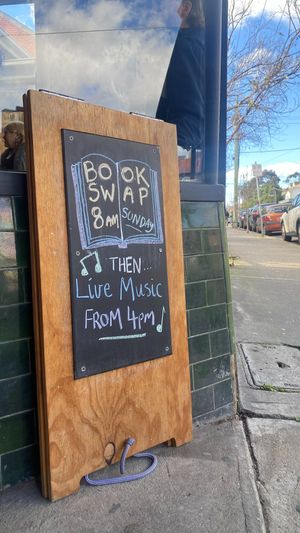 BOOK
SWAP
8AM SUNDAY
THEN...
Live Music
FROM 4pm